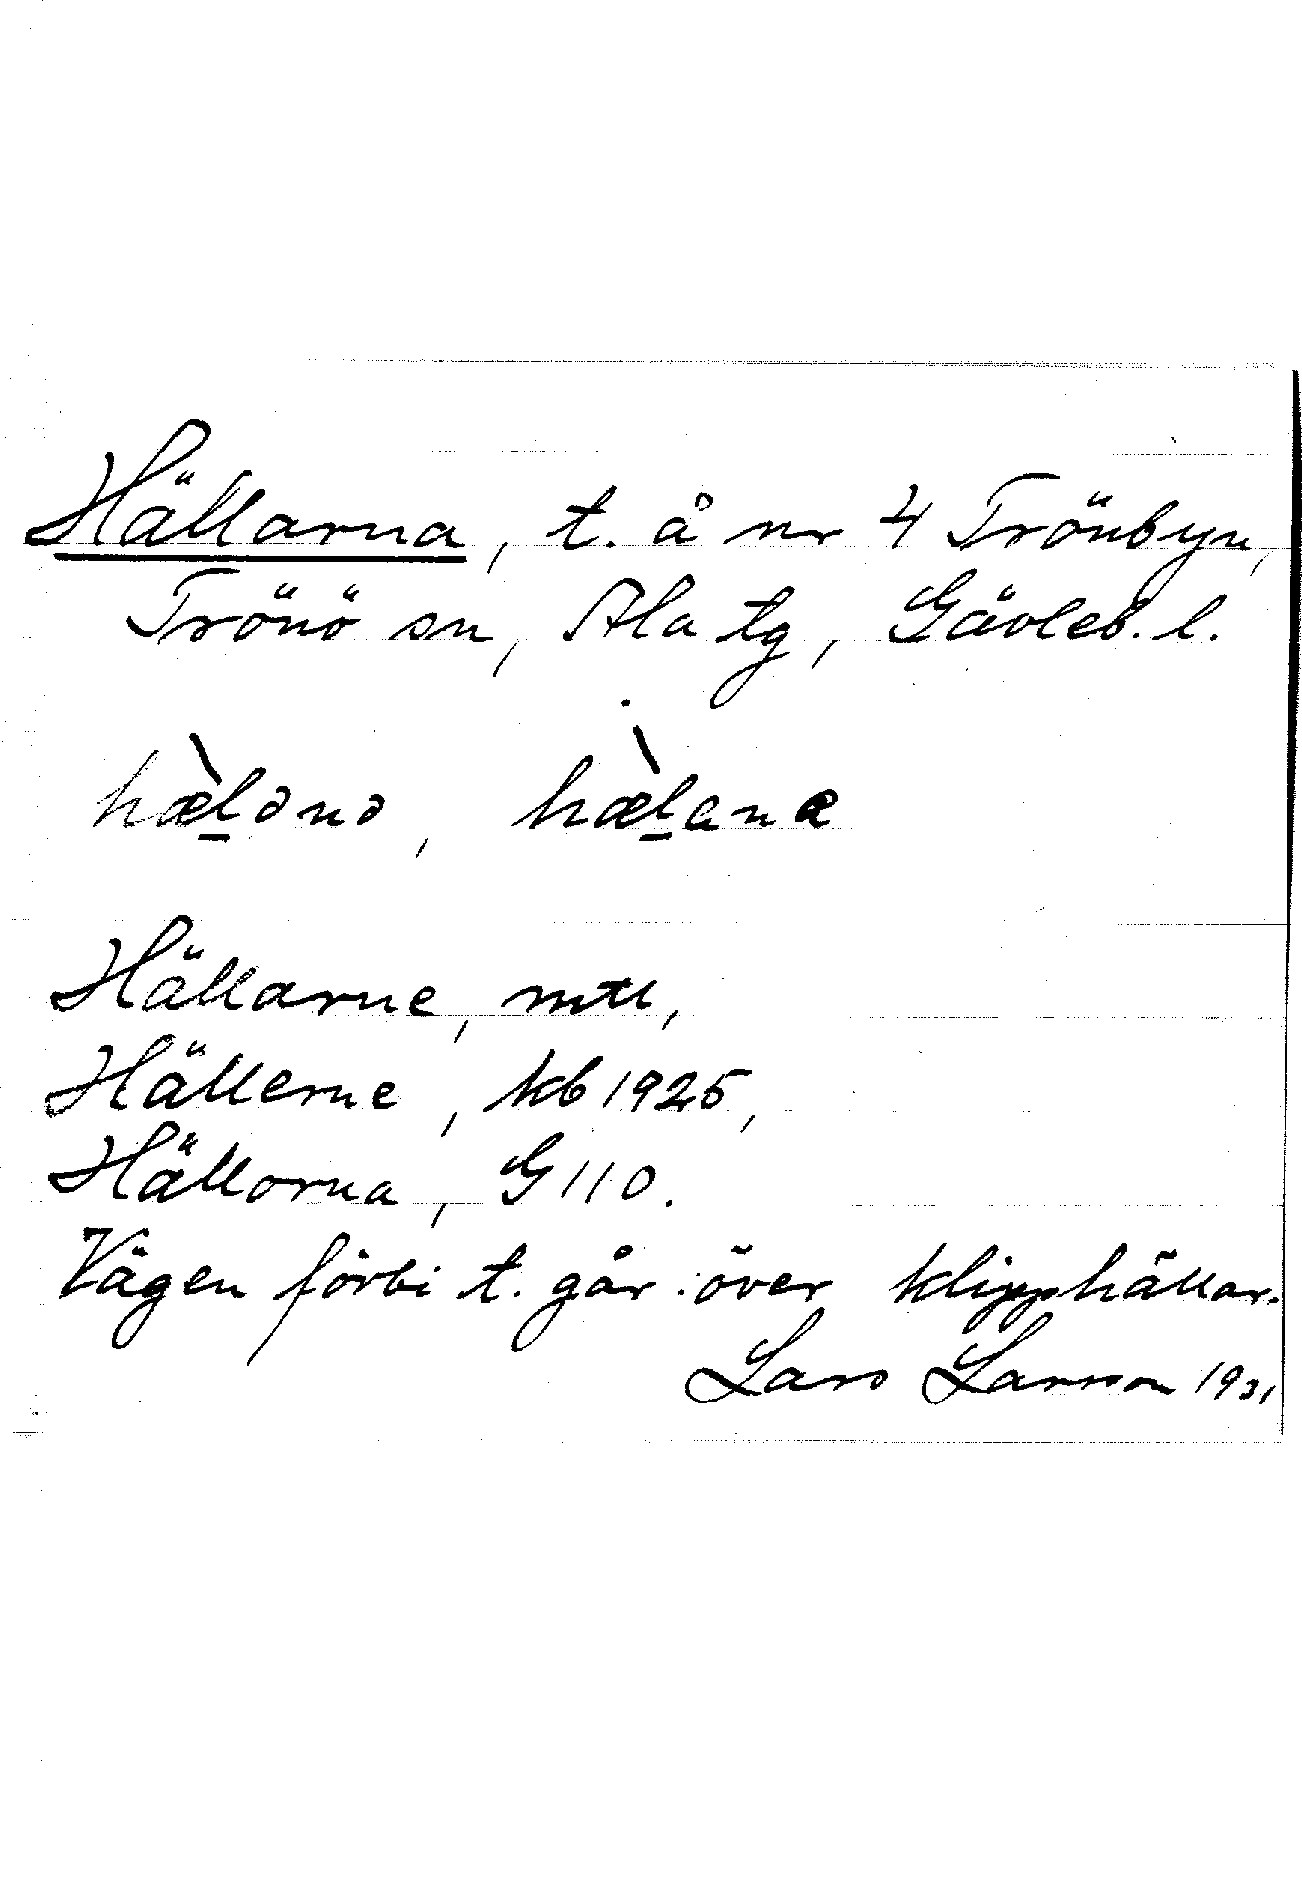 Hällarna, t. å nr 4 Trönbyn,
Trönö sn, Ala tg, Gävleb. l.
hæ̀l̠ənə, hæ̀l̠ana
Hällarne, mtl,
Hällerne, kb 1925,
Hällorna, G 110.
Vägen förbi t. går över klipphällar.
Lars Larsson 1931